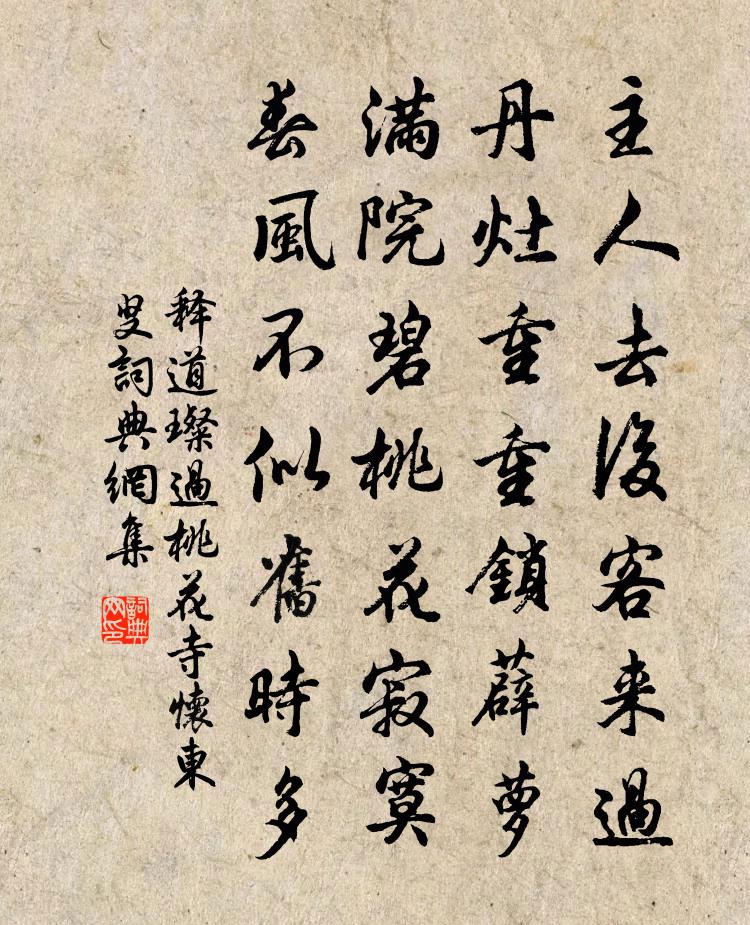 主人去後客来過
丹灶重重鎖薜萝
滿院碧桃花寂寞
春風不似舊時多
释道璨過桃花寺懷東
叟詞典網集
詞典
网印